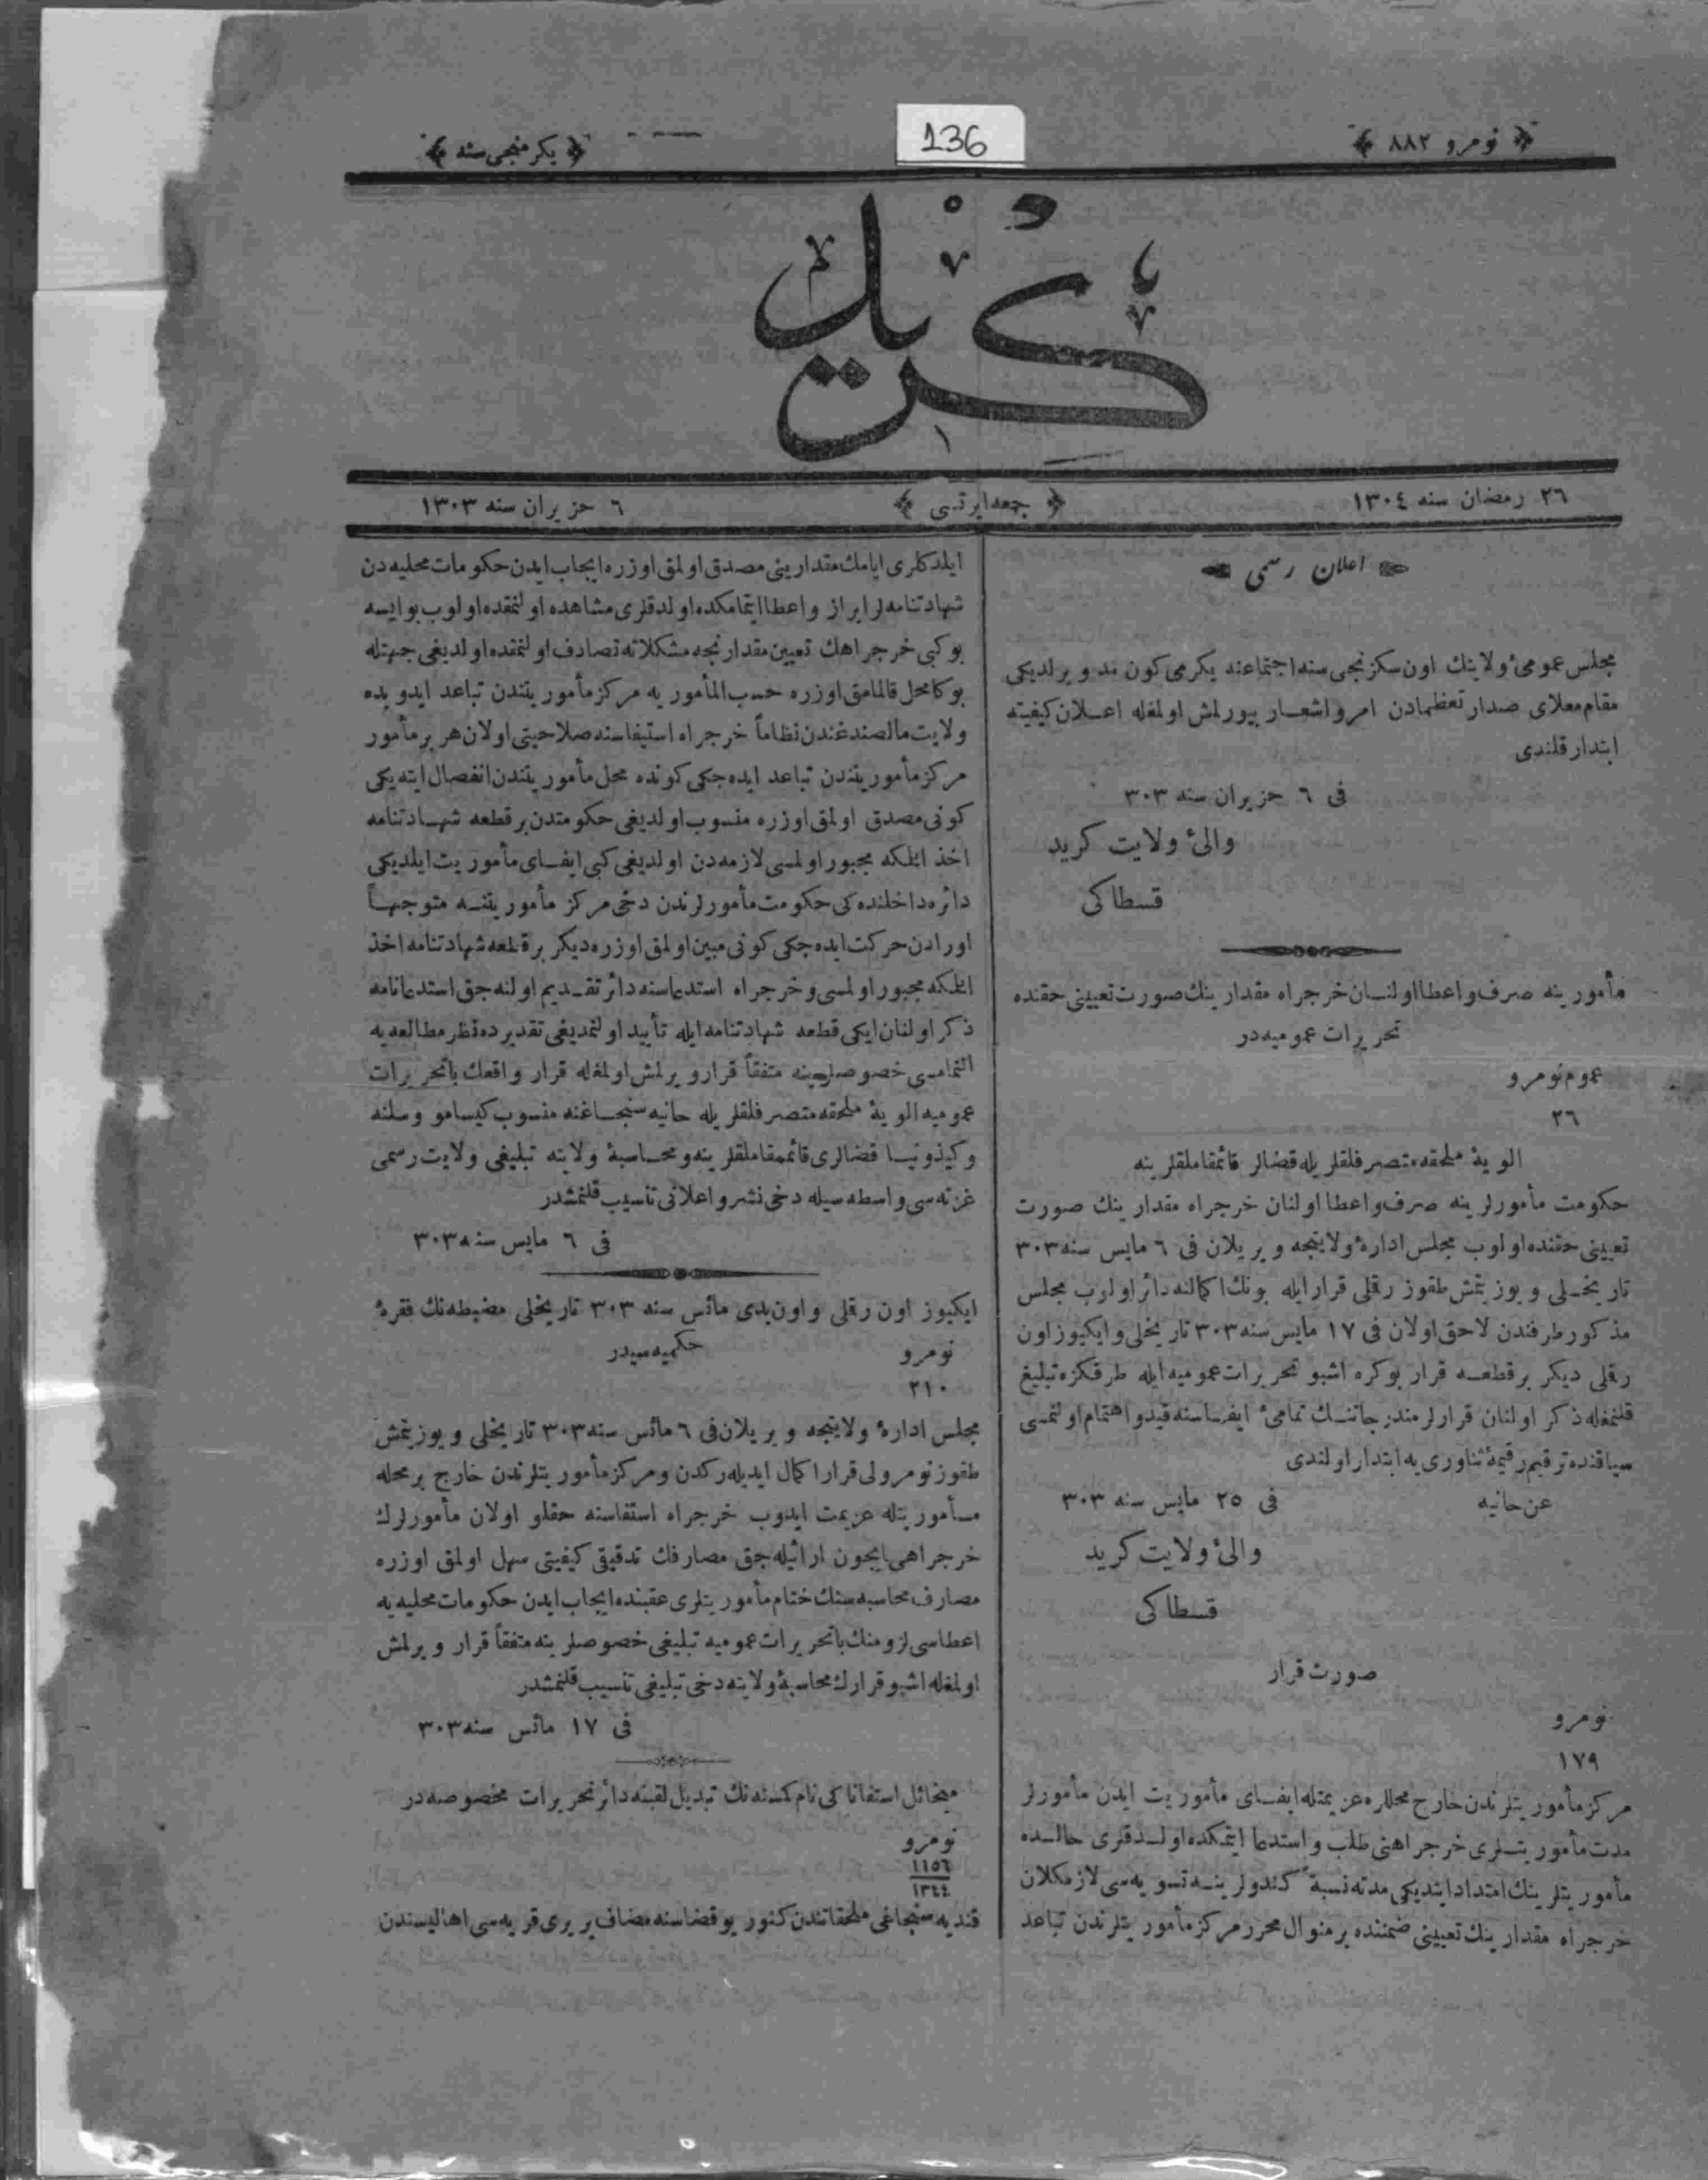 ﴿ نومرو ٨٨٢ ﴾
136
﴿ يكرمنجى سنه ﴾
كريد
٢٦ رمضان سنه ١٣٠٤
﴿ جمعه ايرتسى ﴾
٦ حزيران سنه ١٣٠٣
اعلان رسمى
مجلس عمومىٔ ولايتك اون سكزنجى سنه اجتماعنه يكرمى كون مدويرلديكى
مقام معلاى صدارتعظمادن امرواشعار بيورلمش اولمغله اعلان كيفيته
ابتدار قلندى
فى ٦ حزيران سنه ٣٠٣
والئ ولايت كريد
قسطاكى
مأمورينه صرف واعطا اولنان خرجراه مقدارينك صورت تعيينى حقنده
تحريرات عموميه در
عموم نومرو
٢٦
الويهٔ ملحقه متصرفلقلريله قضالر قائمقاملقلرينه
حكومت مأمورلرينه صرف واعطا اولنان خرجراه مقدارينك صورت
تعيينى حقنده اولوب مجلس ادارهٔ ولايتجه ويريلان فى ٦ مايس سنه ٣٠٣
تاريخلى ويوزيتمش طقوز رقملى قرار ايله بونك اكمالنه دائر اولوب مجلس
مذكور طرفندن لاحق اولان فى ١٧ مايس سنه ٣٠٣ تاريخلى وايكيوز اون
رقملى ديكر برقطعه قرار بوكره اشبو تحريرات عموميه ايله طرفكزه تبليغ
قلنمغله ذكر اولنان قرارلر مندرجاتنك تمامىٔ ايفاسنه قيد و اهتمام اولنمسى
سياقنده ترقيم رقيمهٔ ثناورى يه ابتدار اولندى
عن حانيه
فى ٢٥ مايس سنه ٣٠٣
والئ ولايت كريد
قسطاكى
صورت قرار
نومرو
١٧٩
مركز مأموريتلرندن خارج محللره عزيمتله ايفاى مأموريت ايدن مأمورلر
مدت مأموريتلرى خرجراهنى طلب واستدعا ايتمكده اولدقلرى حالده
مأموريتلرينك امتداد ايتديكى مدته نسبةً كندولرينه تسويه سى لازمكلان
خرجراه مقدارينك تعيينى ضمننده برمنوال محرر مركز مأموريتلرندن تباعد
ايلدكلرى ايامك مقدارينى مصدق اولمق اوزره ايجاب ايدن حكومات محليه دن
شهادتنامه لر ابراز واعطا ايتمامكده اولدقلرى مشاهده اولنمقده اولوب بو ايسه
بوكبى خرجراهك تعيين مقدارنجه مشكلاته تصادف اولنمقده اولديغى جهتله
بوكا محل قالمامق اوزره حسب المأموريه مركز مأموريتندن تباعد ايدوبده
ولايت مال صندغندن نظاماً خرجراه استيفاسنه صلاحيتى اولان هر بر مأمور
مركز مأموريتندن تباعد ايده جكى كونده محل مأموريتندن انفصال ايتديكى
كونى مصدق اولمق اوزره منسوب اولديغى حكومتدن برقطعه شهادتنامه
اخذ ايلمكه مجبور اولمسى لازمه دن اولديغى كبى ايفاى مأموريت ايلديكى
دائره داخلنده كى حكومت مأمورلرندن دخى مركز مأموريتنه متوجهاً
اورادن حركت ايده جكى كونى مبين اولمق اوزره ديكر برقطعه شهادتنامه اخذ
ايلمكه مجبور اولمسى وخرجراه استدعاسنه دائر تقديم اولنه جق استدعانامه
ذكر اولنان ايكى قطعه شهادتنامه ايله تأييد اولنمديغى تقديرده نظر مطالعه يه
النمامسى خصوصلرينه متفقاً قرار ويرلمش اولمغله قرار واقعك باتحريرات
عموميه الويهٔ ملحقه متصرفلقلريله حانيه سنجاغنه منسوب كيسامو وسلنه
وكيذونيا قضالرى قائممقاملقلرينه ومحاسبهٔ ولايته تبليغى ولايت رسمى
غزته سى واسطه سيله دخى نشر واعلانى تنسيب قلنمشدر
فى ٦ مايس سنه ٣٠٣
ايكيوز اون رقملى واون يدى مائس سنه ٣٠٣ تاريخلى مضبطه نك فقرهٔ
حكميه سيدر
نومرو
٢١٠
مجلس ادارهٔ ولايتجه ويريلان فى ٦ مائس سنه ٣٠٣ تاريخلى ويوزيتمش
طقوز نومرولى قرار اكمال ايديله ركدن ومركز مأموريتلرندن خارج برمحله
مأموريتله عزيمت ايدوب خرجراه استفاسنه حقلو اولان مأمورلرك
خرجراهى ايچون ارائيله جق مصارفك تدقيق كيفيتى سهل اولمق اوزره
مصارف محاسبه سنك ختام مأموريتلرى عقبنده ايجاب ايدن حكومات محليه يه
اعطاسى لزومنك باتحريرات عموميه تبليغى خصوصلرينه متفقاً قرار ويرلمش
اولمغله اشبو قرارك محاسبهٔ ولايته دخى تبليغى تنسيب قلنمشدر
فى ١٧ مائس سنه ٣٠٣
ميخائل استفاناكى نام كمسنه نك تبديل لقبنه دائر تحريرات مخصوصه در
نومرو
١١٥٦
١٣٤٤
قنديه سنجاغى ملحقاتندن كنوريو قضاسنه مضاف بريرى قريه سى اهاليسندن